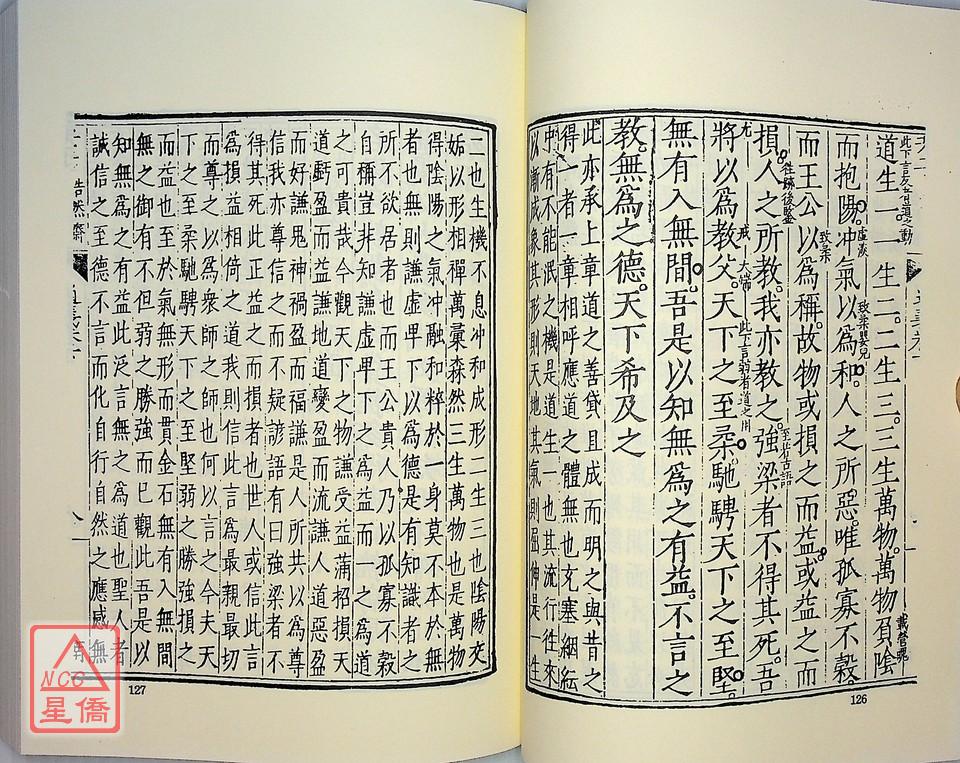 道生一。一生二。二生三。三生萬物。萬物負陰
此下言反者道之動
戴營魄
而抱陽。冲氣以爲和。人之所惡。唯孤寡不糓。
虛炁
致柔嬰兒
而王公以爲稱。故物或損之而益。或益之而
致柔
損。人之所教。我亦教之。強梁者不得其死。吾
徃跡後鑒
至此皆古語
將以爲教父。天下之至柔。馳騁天下之至堅。
尤
戒
大端
此下言弱者道之用
無有入無間。吾是以知無爲之有益。不言之
教。無爲之德。天下希及之
此亦承上章道之善貸且成而明之與昔之
得一者一章相呼應道之體無也充塞絪紜
中有不能泯之機是道生一也其流行徃來
以漸成象其形則天地其氣則屈伸是一生
126
二也生機不息冲和成形二生三也陰陽交
姤以形相禪萬彙森然三生萬物也是萬物
得陰陽之氣冲融和粹於一身莫不本於無
者也無則謙虛卑下以爲德是有知識者之
所不欲居也而王公貴人乃以孤寡不糓
自稱豈非知謙虛卑下之爲益而一之爲道
之可貴哉今觀天下之物謙受益滿招損天
道虧盈而益謙地道變盈而流謙人道惡盈
而好謙鬼神禍盈而福謙是人所共以爲尊
信我亦尊信之而不疑諺語有曰強梁者不
得其死此正益之而損者也世人或信此言
爲損益相倚之道我則信此言爲最親切
而尊之以爲衆師之師也何以言之今夫天
下之至柔馳騁天下之至堅弱之勝強損之
而益也至於氣無形而貫金石無有入無間
無之御有不但弱之勝強而已觀此吾是以
知無爲之有益此泛言無之爲道也聖人者
誠信之至德不言而化自行自然之應感無
浩然齋
127
NCC
星僑